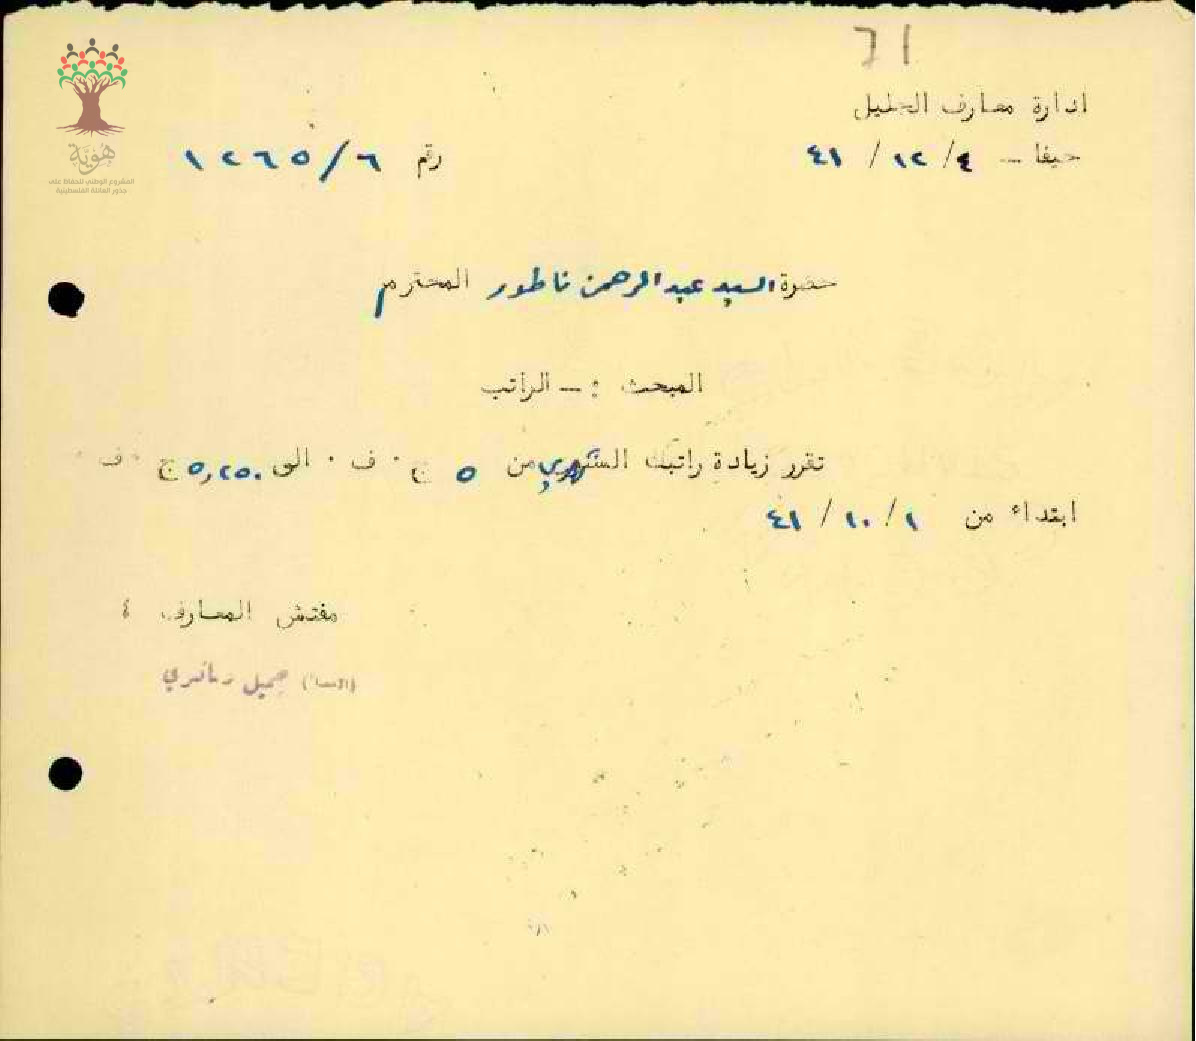 ٦١
ادارة معارف الجليل
حيفا – ٤ / ١٢ / ٤١
رقم ٦ / ١٢٦٥
هوية
المشروع الوطني للحفاظ على
جذور العائلة الفلسطينية
حضرة السيد عبد الرحمن ناطور المحترم
المبحث :– الراتب
تقرر زيادة راتبك الشهري من ٥ ج ٠ ف ٠ الى ٥,٢٥٠ ج ٠ ف ٠
ابتداء من ١ / ١٠ / ٤١
مفتش المعارف
جميل